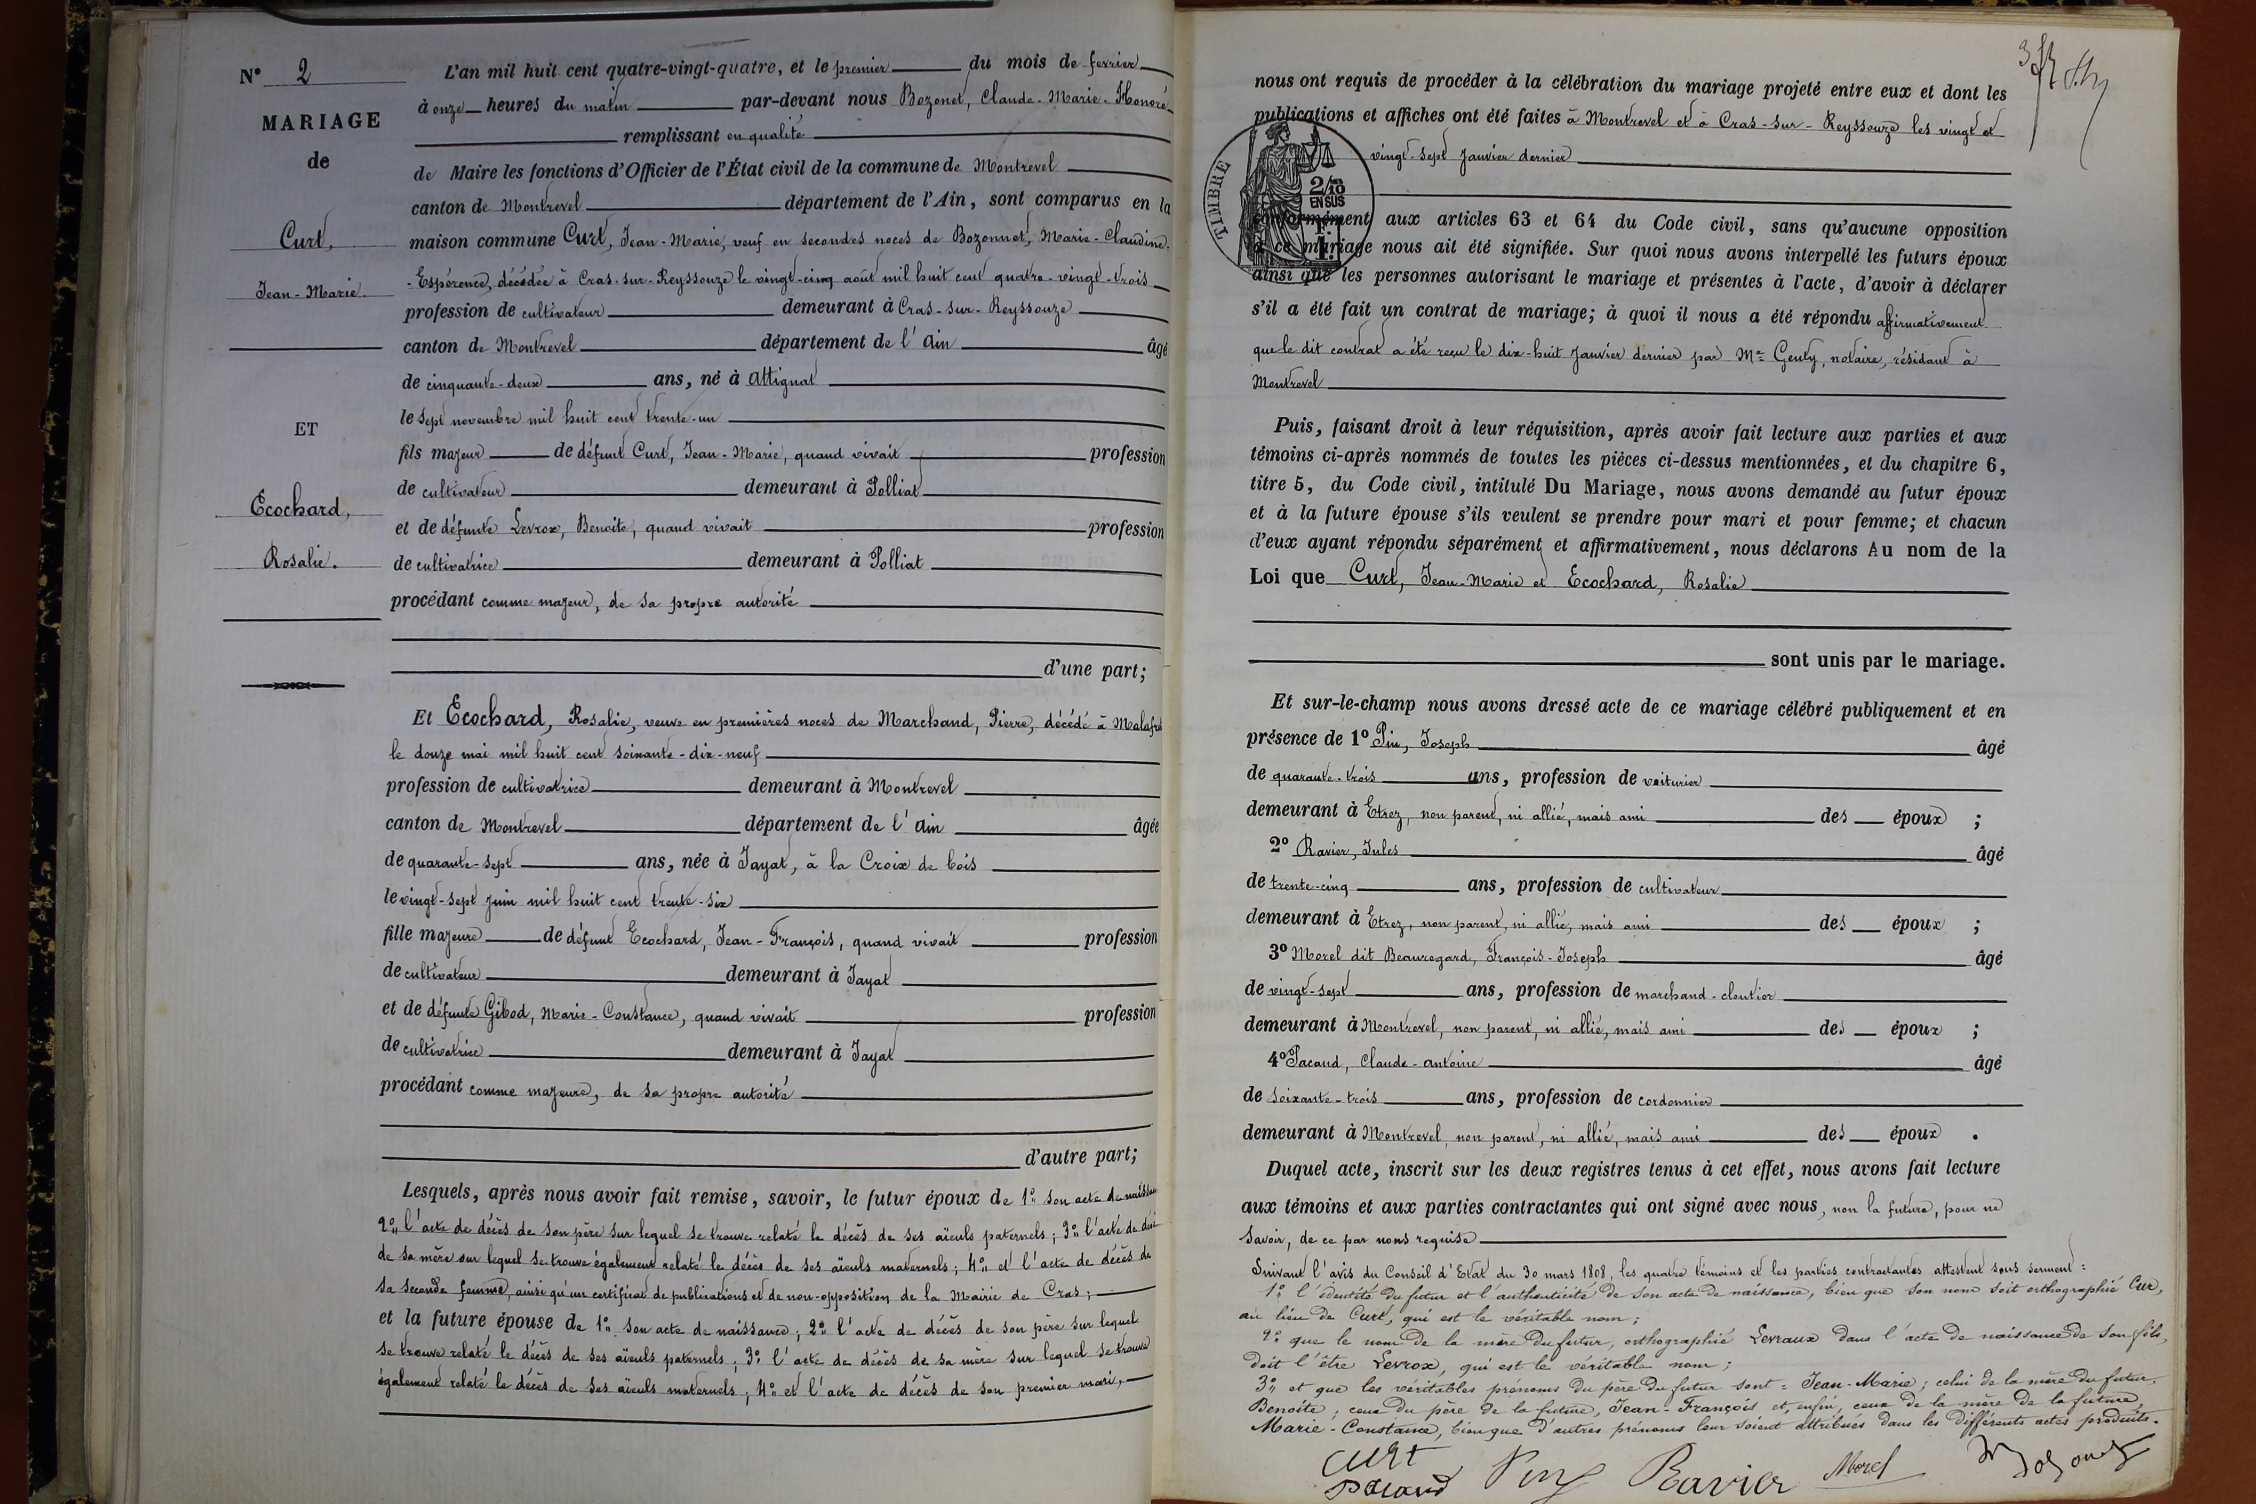 N° 2
MARIAGE
de
Curt,
Jean-Marie.
ET
Ecochard,
Rosalie.
L'an mil huit cent quatre-vingt-quatre, et le premier du mois de fevrier
à onze heures du matin par-devant nous Bozonet, Claude-Marie-Honoré
remplissant en qualité
de Maire les fonctions d'Officier de l'État civil de la commune de Montrevel
canton de Montrevel département de l'Ain, sont comparus en la
maison commune Curt, Jean-Marie, veuf en secondes noces de Bozonnet, Marie-Claudine
-Espérence, décédée à Cras-sur-Reyssouze le vingt-cinq août mil huit cent quatre-vingt-trois
profession de cultivateur demeurant à Cras-sur-Reyssouze
canton de Montrevel département de l'Ain âgé
de cinquante-deux ans, né à Attignat
le sept novembre mil huit cent trente-un
fils majeur de défunt Curt, Jean-Marie, quand vivait profession
de cultivateur demeurant à Polliat
et de défunte Levrox, Benoite, quand vivait profession
de cultivatrice demeurant à Polliat
procédant comme majeur, de sa propre autorité
d'une part;
Et Ecochard, Rosalie, veuve en premières noces de Marchand, Pierre, décédé à Malafret
le douze mai mil huit cent soixante-dix-neuf
profession de cultivatrice demeurant à Montrevel
canton de Montrevel département de l'Ain âgée
de quarante-sept ans, née à Jayat, à la Croix de bois
le vingt-sept juin mil huit cent trente-six
fille majeure de défunt Ecochard, Jean-François, quand vivait profession
de cultivateur demeurant à Jayat
et de défunte Gibod, Marie-Constance, quand vivait profession
de cultivatrice demeurant à Jayat
procédant comme majeure, de sa propre autorité
d'autre part;
Lesquels, après nous avoir fait remise, savoir, le futur époux de 1° son acte de naissance
2° l'acte de décès de son père sur lequel se trouve relaté le décès de ses aïeuls paternels; 3° l'acte de décès
de sa mère sur lequel se trouve également relaté le décès de ses aïeuls maternels; 4° et l'acte de décès de
sa seconde femme, ainsi qu'un certificat de publications et de non-opposition de la Mairie de Cras;
et la future épouse de 1° son acte de naissance; 2° l'acte de décès de son père sur lequel
se trouve relaté le décès de ses aïeuls paternels; 3° l'acte de décès de sa mère sur lequel se trouve
également relaté le décès de ses aïeuls maternels; 4° et l'acte de décès de son premier mari,
nous ont requis de procéder à la célébration du mariage projeté entre eux et dont les
publications et affiches ont été faites à Montrevel et à Cras-sur-Reyssouze les vingt et
vingt-sept Janvier dernier
TIMBRE
2/10
EN SUS
conformément aux articles 63 et 64 du Code civil, sans qu'aucune opposition
à ce mariage nous ait été signifiée. Sur quoi nous avons interpellé les futurs époux
ainsi que les personnes autorisant le mariage et présentes à l'acte, d'avoir à déclarer
s'il a été fait un contrat de mariage; à quoi il nous a été répondu affirmativement
que le dit contrat a été reçu le dix-huit Janvier dernier par Me Genty, notaire, résidant à
Montrevel
Puis, faisant droit à leur réquisition, après avoir fait lecture aux parties et aux
témoins ci-après nommés de toutes les pièces ci-dessus mentionnées, et du chapitre 6,
titre 5, du Code civil, intitulé Du Mariage, nous avons demandé au futur époux
et à la future épouse s'ils veulent se prendre pour mari et pour femme; et chacun
d'eux ayant répondu séparément et affirmativement, nous déclarons Au nom de la
Loi que Curt, Jean-Marie et Ecochard, Rosalie
sont unis par le mariage.
Et sur-le-champ nous avons dressé acte de ce mariage célébré publiquement et en
présence de 1° Pin, Joseph âgé
de quarante-trois ans, profession de voiturier
demeurant à Etrez, non parent, ni allié, mais ami des époux ;
2° Ravier, Jules âgé
de trente-cinq ans, profession de cultivateur
demeurant à Etrez, non parent, ni allié, mais ami des époux ;
3° Morel dit Beauregard, François-Joseph âgé
de vingt-sept ans, profession de marchand-cloutier
demeurant à Montrevel, non parent, ni allié, mais ami des époux ;
4° Pacaud, Claude-Antoine âgé
de soixante-trois ans, profession de cordonnier
demeurant à Montrevel, non parent, ni allié, mais ami des époux .
Duquel acte, inscrit sur les deux registres tenus à cet effet, nous avons fait lecture
aux témoins et aux parties contractantes qui ont signé avec nous, non la future, pour ne
savoir, de ce par nous requise
Suivant l'avis du Conseil d'Etat du 30 mars 1808, les quatre témoins et les parties contractantes attestent sous serment :
1° l'identité du futur et l'authenticité de son acte de naissance, bien que son nom soit orthographié Cur,
au lieu de Curt, qui est le véritable nom;
2° que le nom de la mère du futur, orthographié Levraux dans l'acte de naissance de son fils,
doit l'être Levrox, qui est le véritable nom;
3° et que les véritables prénoms du père du futur sont : Jean-Marie; celui de la mère du futur,
Benoite; ceux du père de la future, Jean-François et, enfin, ceux de la mère de la future,
Marie-Constance, bien que d'autres prénoms leur soient attribués dans les différents actes produits.
Curt
Pacaud Pin Ravier Morel Bozonet